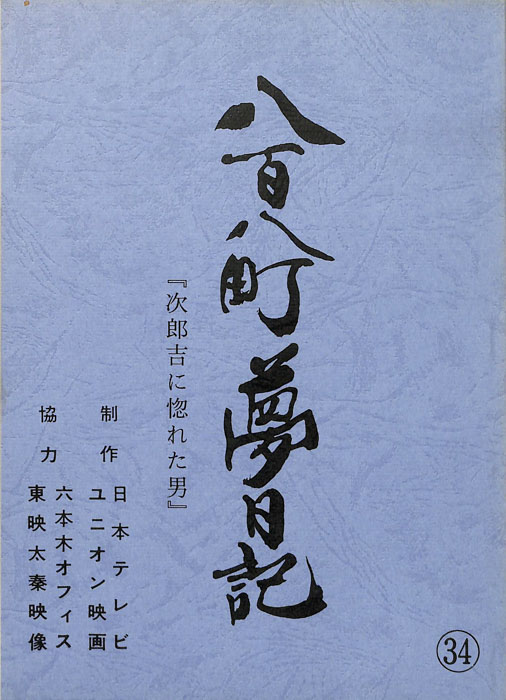 八百八町夢日記
『次郎吉に惚れた男』
制作 日本テレビ
ユニオン映画
協力 六本木オフィス
東映太秦映像
34